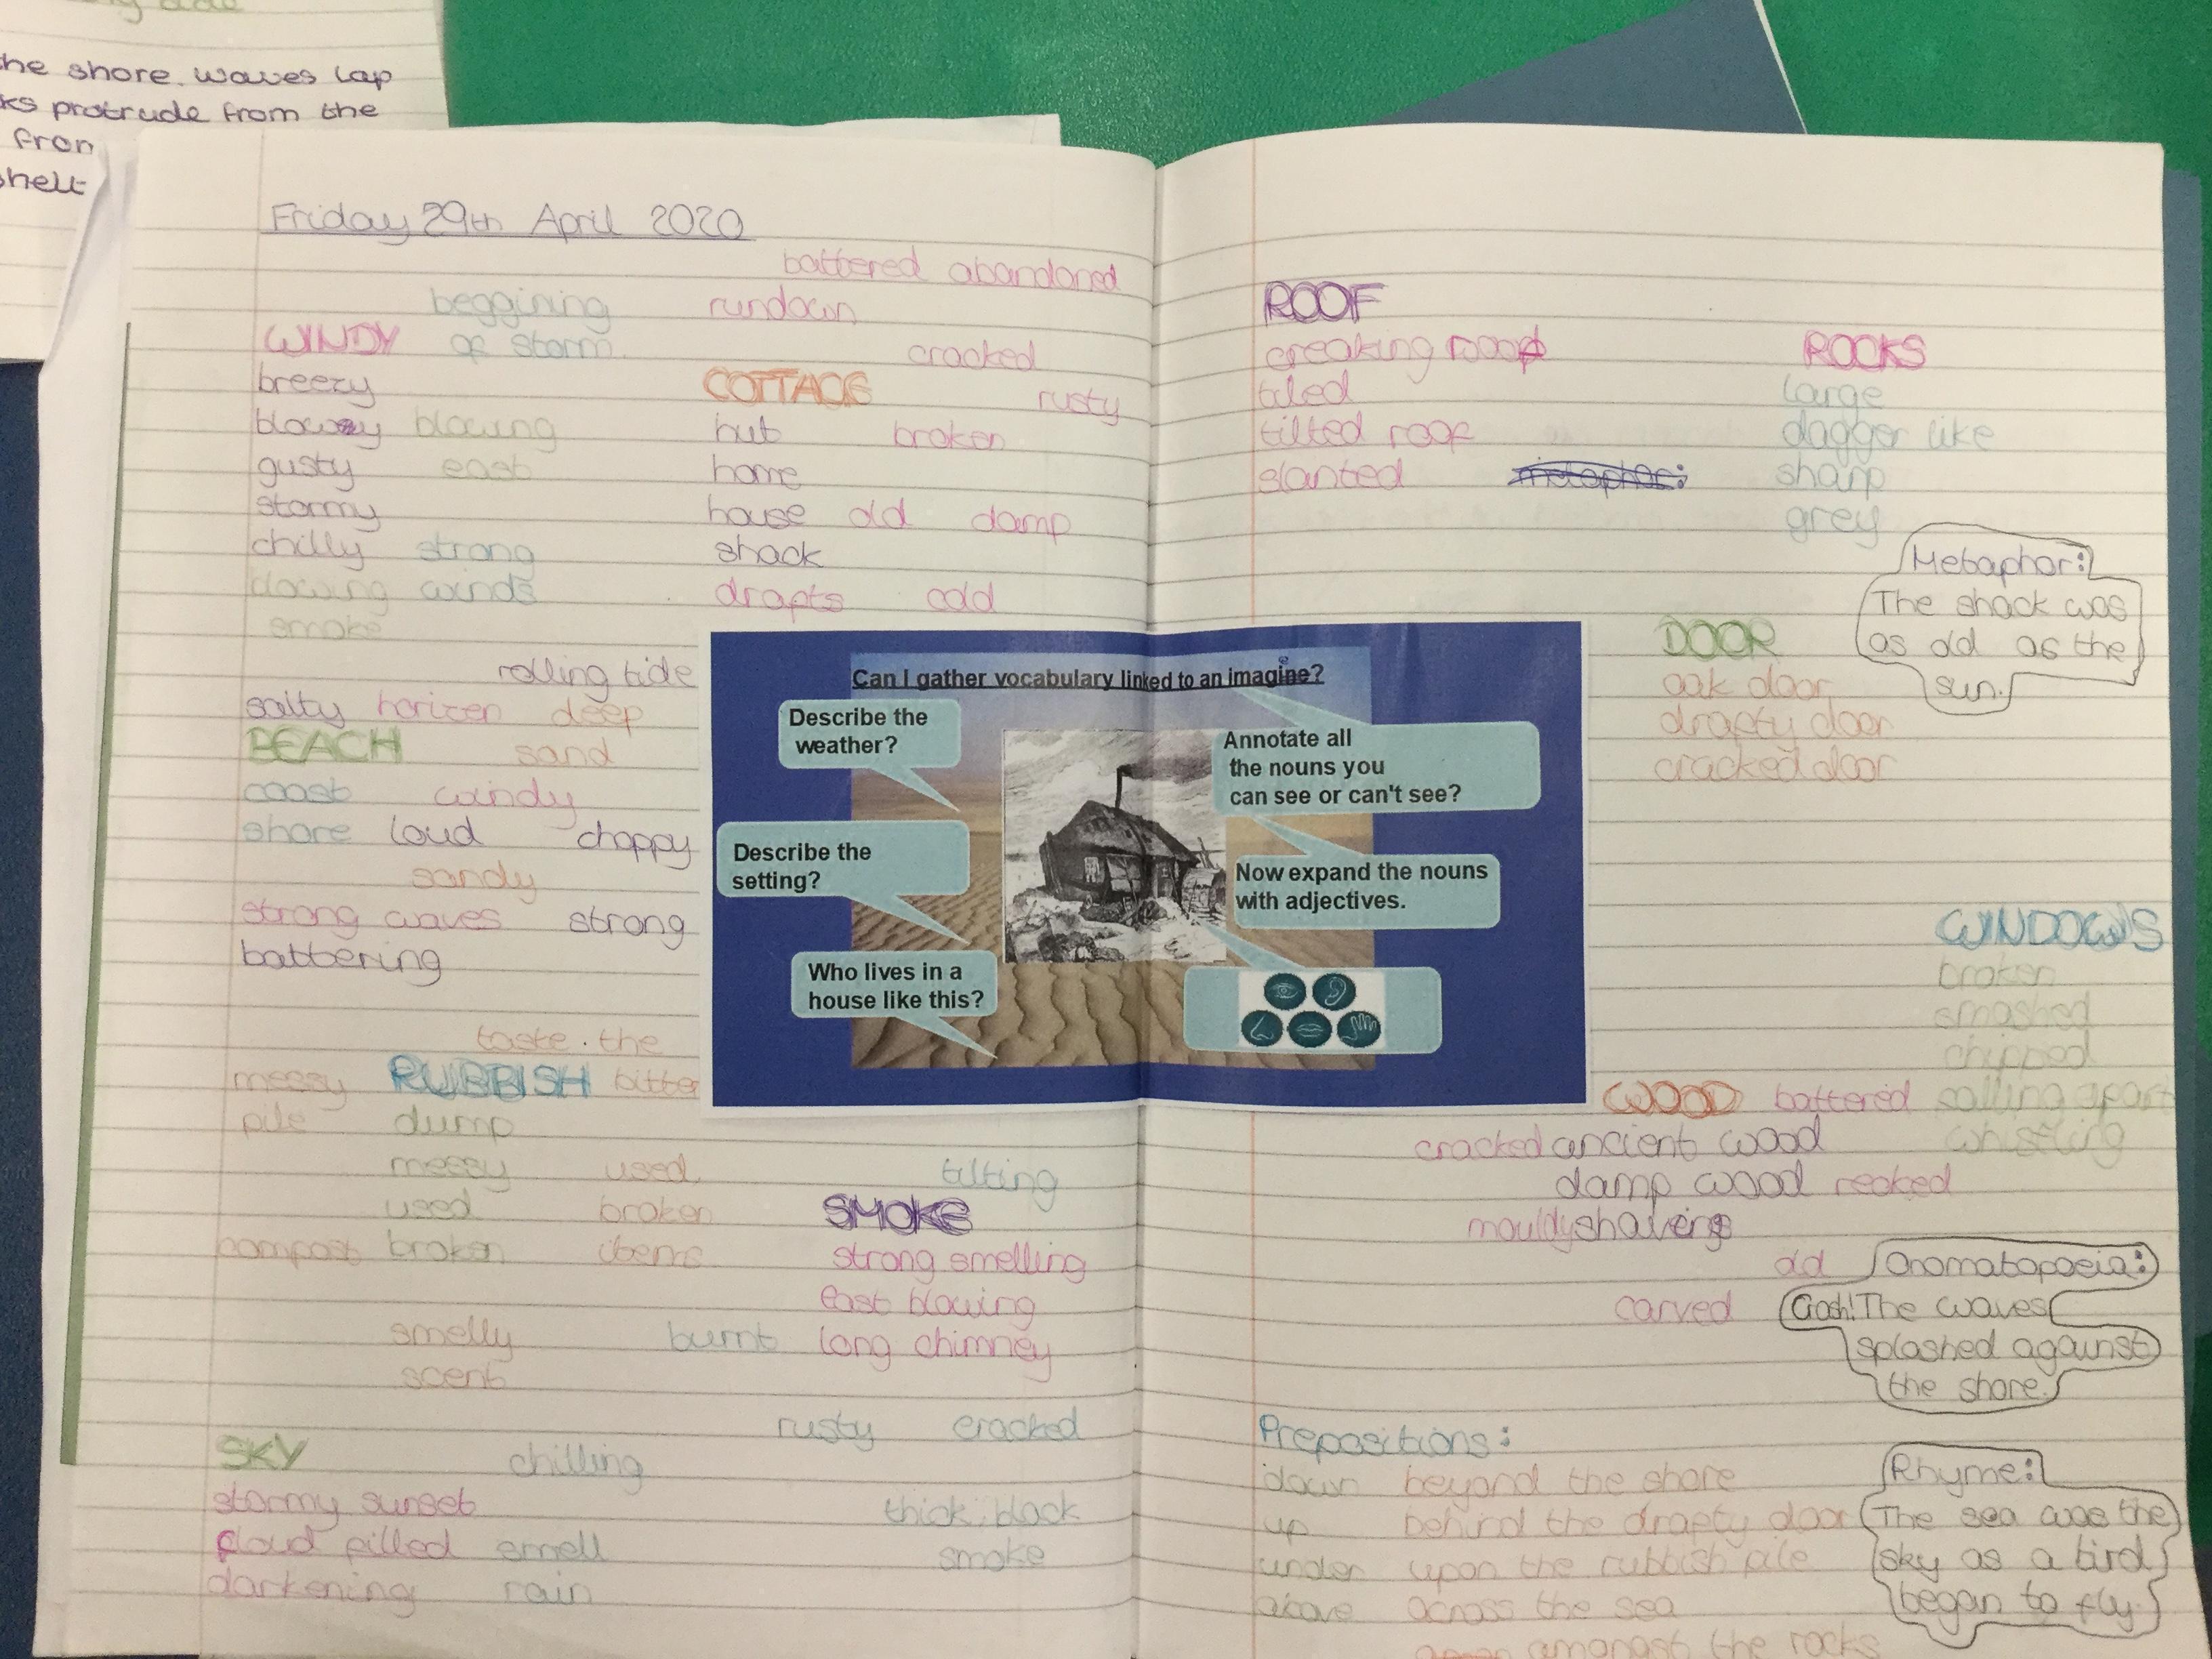 he shore. waves lap
ks protrude from the
fron
shelt
Friday 29th April 2020
battered abandoned
beggining rundown
WINDY of storm
cracked
breezy
COTTAGE
rusty
blowey blowing
hut broken
gusty east
home
stormy
house old damp
chilly strong
shack
blowing winds
drafts cold
smoke
rolling tide
salty horizen deep
BEACH sand
coast windy
shore loud choppy
sandy
strong waves strong
battering
taste the
messy RUBBISH bitter
pile dump
messy used
used broken
compost broken items
smelly
scent
tilting
SMOKE
strong smelling
east blowing
burnt long chimney
rusty cracked
thick black
smoke
SKY chilling
stormy sunset
cloud filled smell
darkening rain
Can I gather vocabulary linked to an imagine?
Describe the
weather?
Describe the
setting?
Who lives in a
house like this?
Annotate all
the nouns you
can see or can't see?
Now expand the nouns
with adjectives.
ROOF
creaking roof
tiled
tilted roof
slanted metaphor:
ROCKS
large
dagger like
sharp
grey
Metaphor:
The shack was
as old as the
sun.
DOOR
oak door
drafty door
cracked door
WINDOWS
broken
smashed
chipped
falling apart
whistling
WOOD battered
cracked ancient wood
damp wood reaked
mouldy shavings
old
carved
Onomatopoeia:
Gosh! The waves
splashed against
the shore.
Prepositions:
down beyond the shore
up behind the drafty door
under upon the rubbish pile
above across the sea
amongst the rocks
Rhyme:
The sea was the
sky as a bird
began to fly.